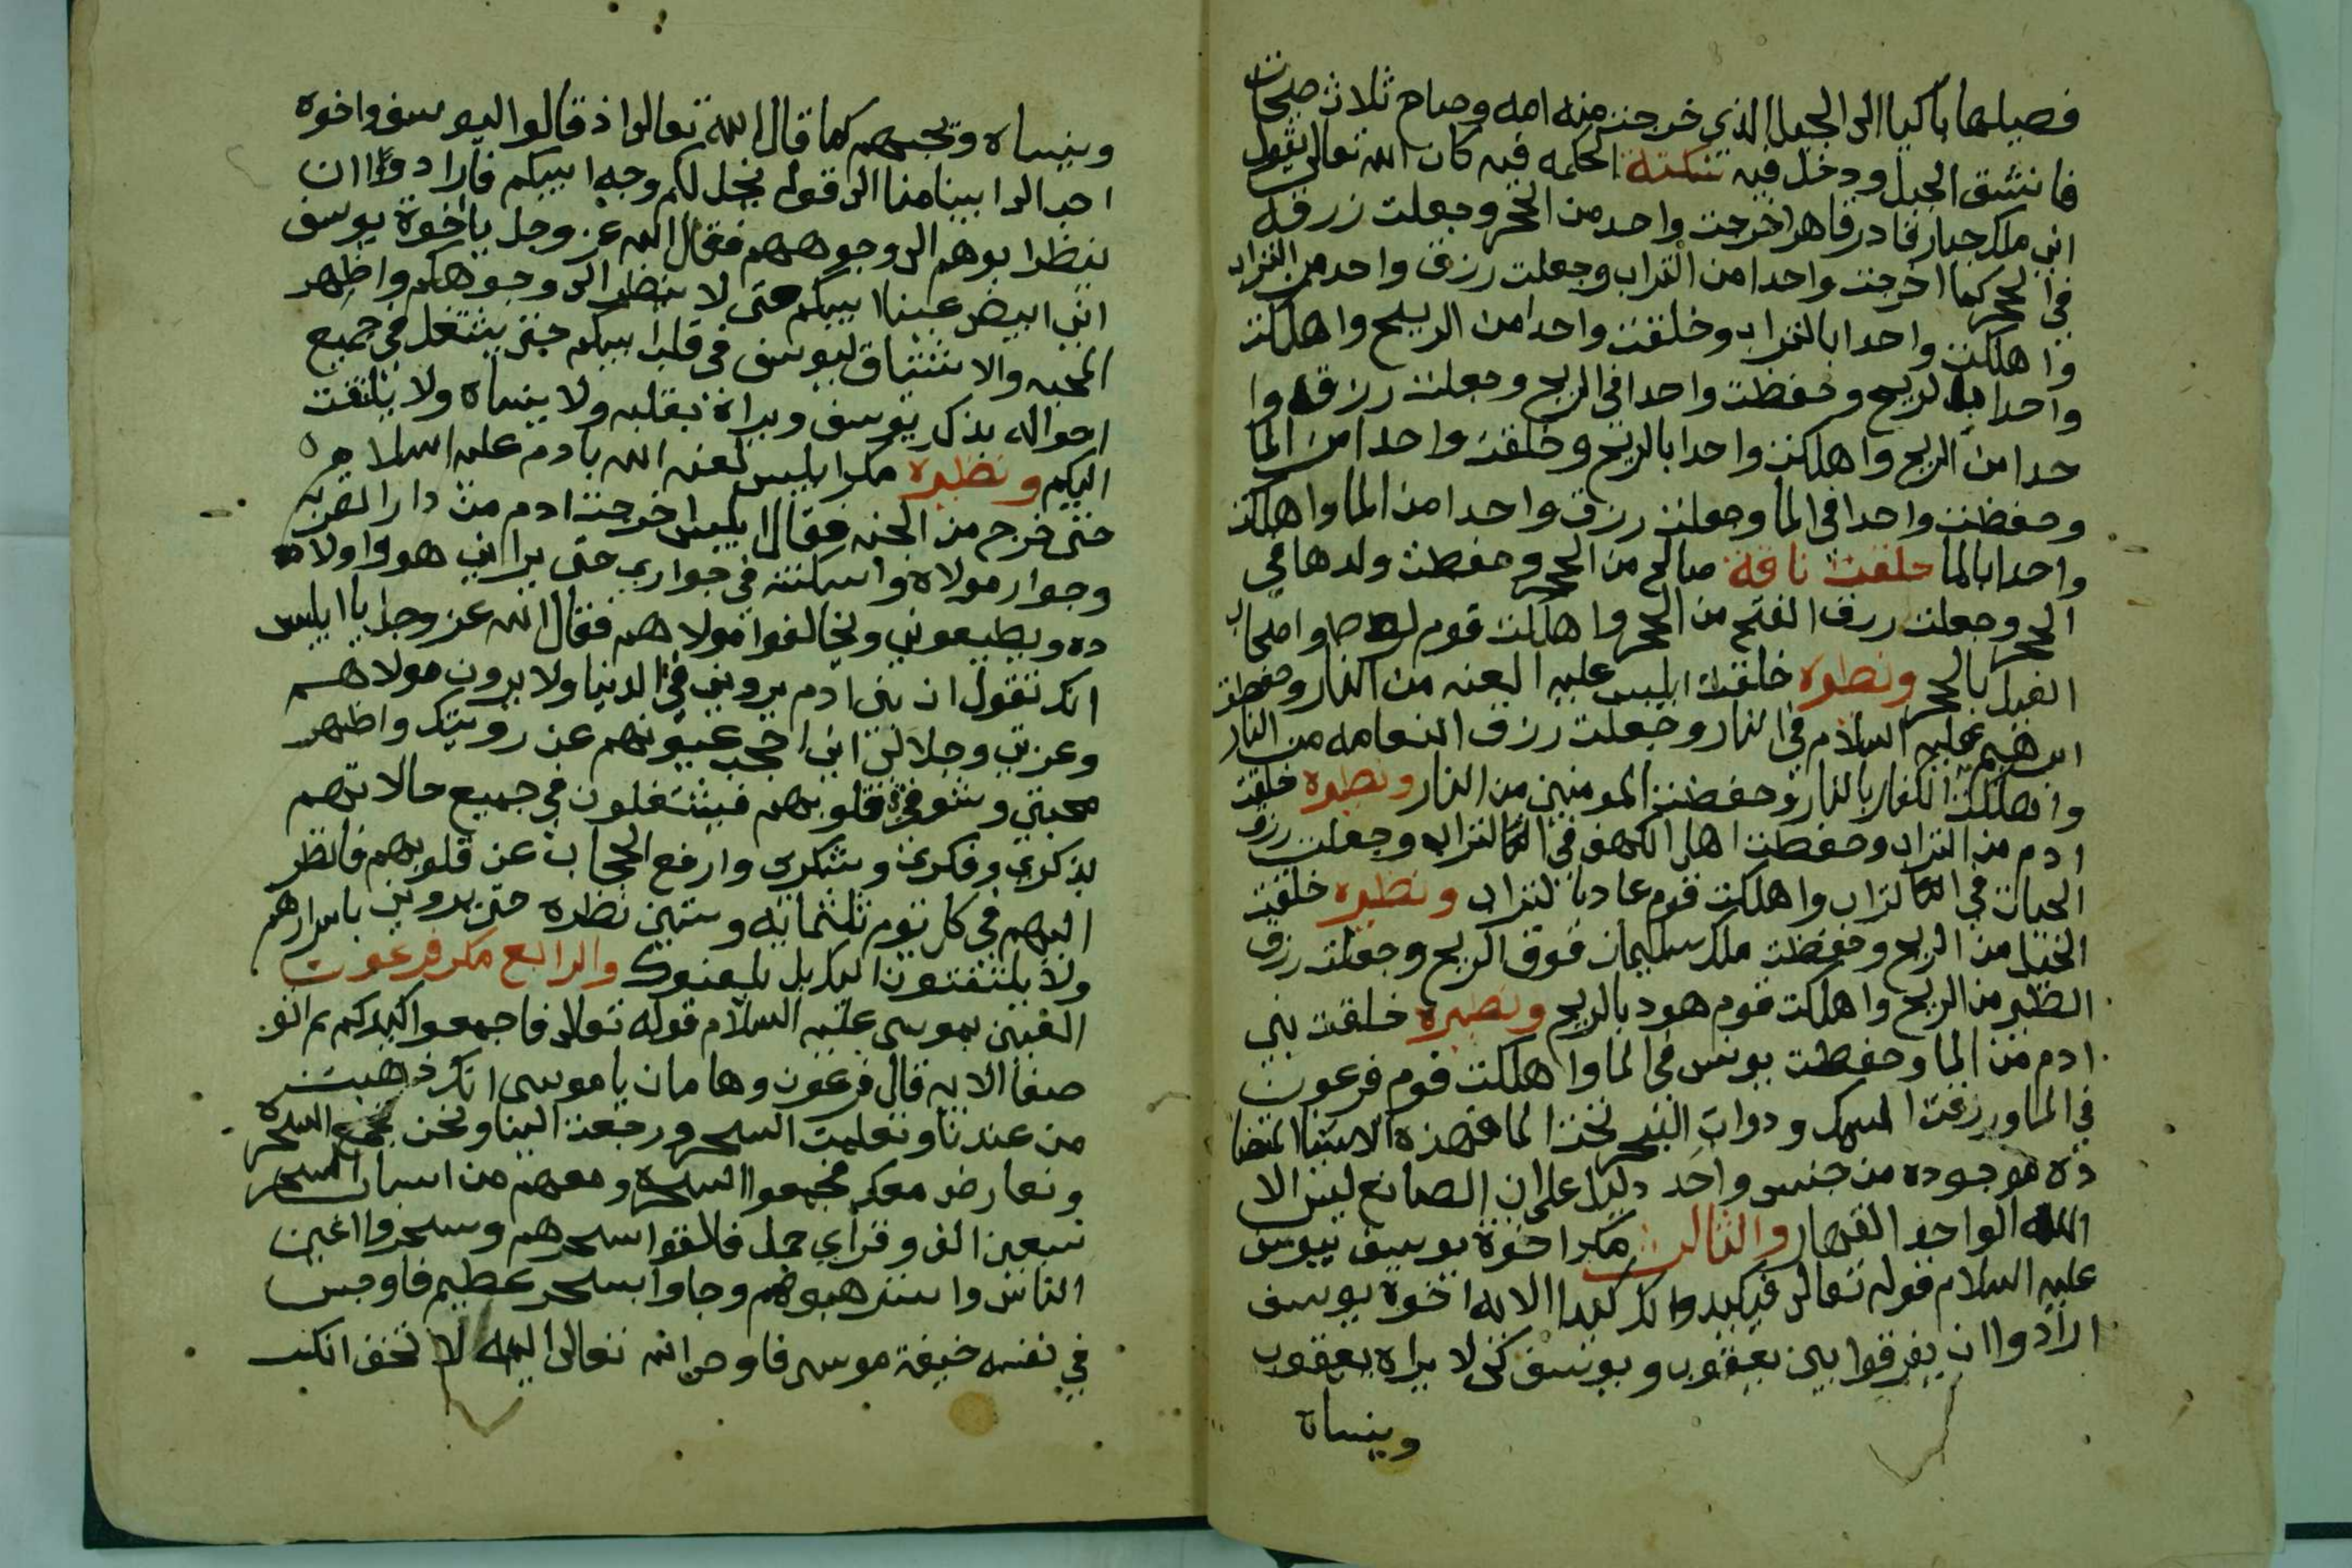 فصيلها باكيا الى الجبل الذي خرجت منه امه وصاح ثلاث صيحات
فانشق الجبل ودخل فيه نكتة الحكمه فيه كان الله تعالى يقول
اني ملك جبار قادر قاهر اخرجت واحد من الحجر وجعلت زرقه
في الحجر كما اخرجت واحدا من التراب وجعلت رزق واحد من التراب
واهلكت واحدا بالتراب وخلقت واحدا من الريح واهلكت
واحدا بالريح وحفظت واحدا في الريح وجعلت رزقه وا
حدا من الريح واهلكت واحدا بالريح وخلقت واحدا من الما
وحفظت واحدا في الما وجعلت رزق واحدا من الما واهلكت
واحدا بالما خلقت ناقة صالح من الحجر وحفظت ولدها في
الحجر وجعلت رزق الفتح من الحجر واهلكت قوم لوط واصحاب
الفيل بالحجر ونظيره خلقت ابليس عليه اليعنه من النار وحفظت
ابرهيم عليه السلام في النار وجعلت رزق النعامه من النار
واهلكت الكفار بالنار وحفظت المومنين من النار ونظيره خلقت
ادم من التراب وحفظت اهل الكهف في التراب وجعلت رزق
الحيات في التراب واهلكت قوم عاد بالتراب ونظيره خلقت
الخيل من الريح وحفظت ملك سليمان فوق الريح وجعلت رزق
الطير من الريح واهلكت قوم هود بالريح ونظيره خلقت بني
ادم من الما وحفظت يونس في الما واهلكت قوم فرعون
في الما ورزقت السمك ودواب البحر تحت الما فهذه الاشيا المتضا
ده موجوده من جنس واحد دليل على ان الصانع ليس الا
الله الواحد القهار والثالث مكر اخوة يوسف بيوسف
عليه السلام قوله تعالى فيكيدوا لك كيدا الايه اخوة يوسف
ارادوا ان يفرقوا بين يعقوب ويوسف كي لا يراه يعقوب
وينساه
وينساه ويحبهم كما قال الله تعالى اذ قالوا ليوسف واخوه
احب الى ابينا منا الى قوله يخل لكم وجه ابيكم فارادوا ان
ينظر ابوهم الى وجوههم فقال الله عز وجل يا اخوة يوسف
اني ابيض عينا ابيكم حتى لا ينظر الى وجوهكم واظهر
المحبه والاشتياق ليوسف في قلب ابيكم حتى يشتغل في جميع
احواله بذكر يوسف ويراه بقلبه ولا ينساه ولا يلتفت
اليكم ونظيره مكر ابليس لعنه الله بادم عليه السلام
حتى خرج من الجنه فقال ابليس اخرجت ادم من دار القربه
وجوار مولاه واسكنته في جواري حتى يراني هو واولا
ده ويطيعوني ويخالفوا مولاهم فقال الله عز وجل يا ابليس
انك تقول ان بني ادم يروني في الدنيا ولا يرون مولاهم
وعزتي وجلالي اني احجب عيونهم عن رويتك واظهر
محبتي وشوقي في قلوبهم فيشتغلون في جميع حالاتهم
بذكري وفكري وشكري وارفع الحجاب عن قلوبهم فانظر
اليهم في كل يوم ثلثمايه وستين نظره حتى يروني باسرارهم
ولا يلتفتون اليك بل يلعنوك والرابع مكر فرعون
الغبين بموسى عليه السلام قوله تعالى فاجمعوا كيدكم ثم اتو
صفا الايه قال فرعون وهامان يا موسى انك ذهبت
من عندنا وتعلمت السحر ورجعت الينا ونحن نجمع السحره
ونعارض معك فجمعوا السحره ومعهم من اسباب السحر
سبعين الف وقراي جمل فالقوا سحرهم وسحروا اعين
الناس واسترهبوهم وجاوا بسحر عظيم فاوجس
في نفسه خيفة موسى فاوحى الله تعالى اليه لا تخف انك